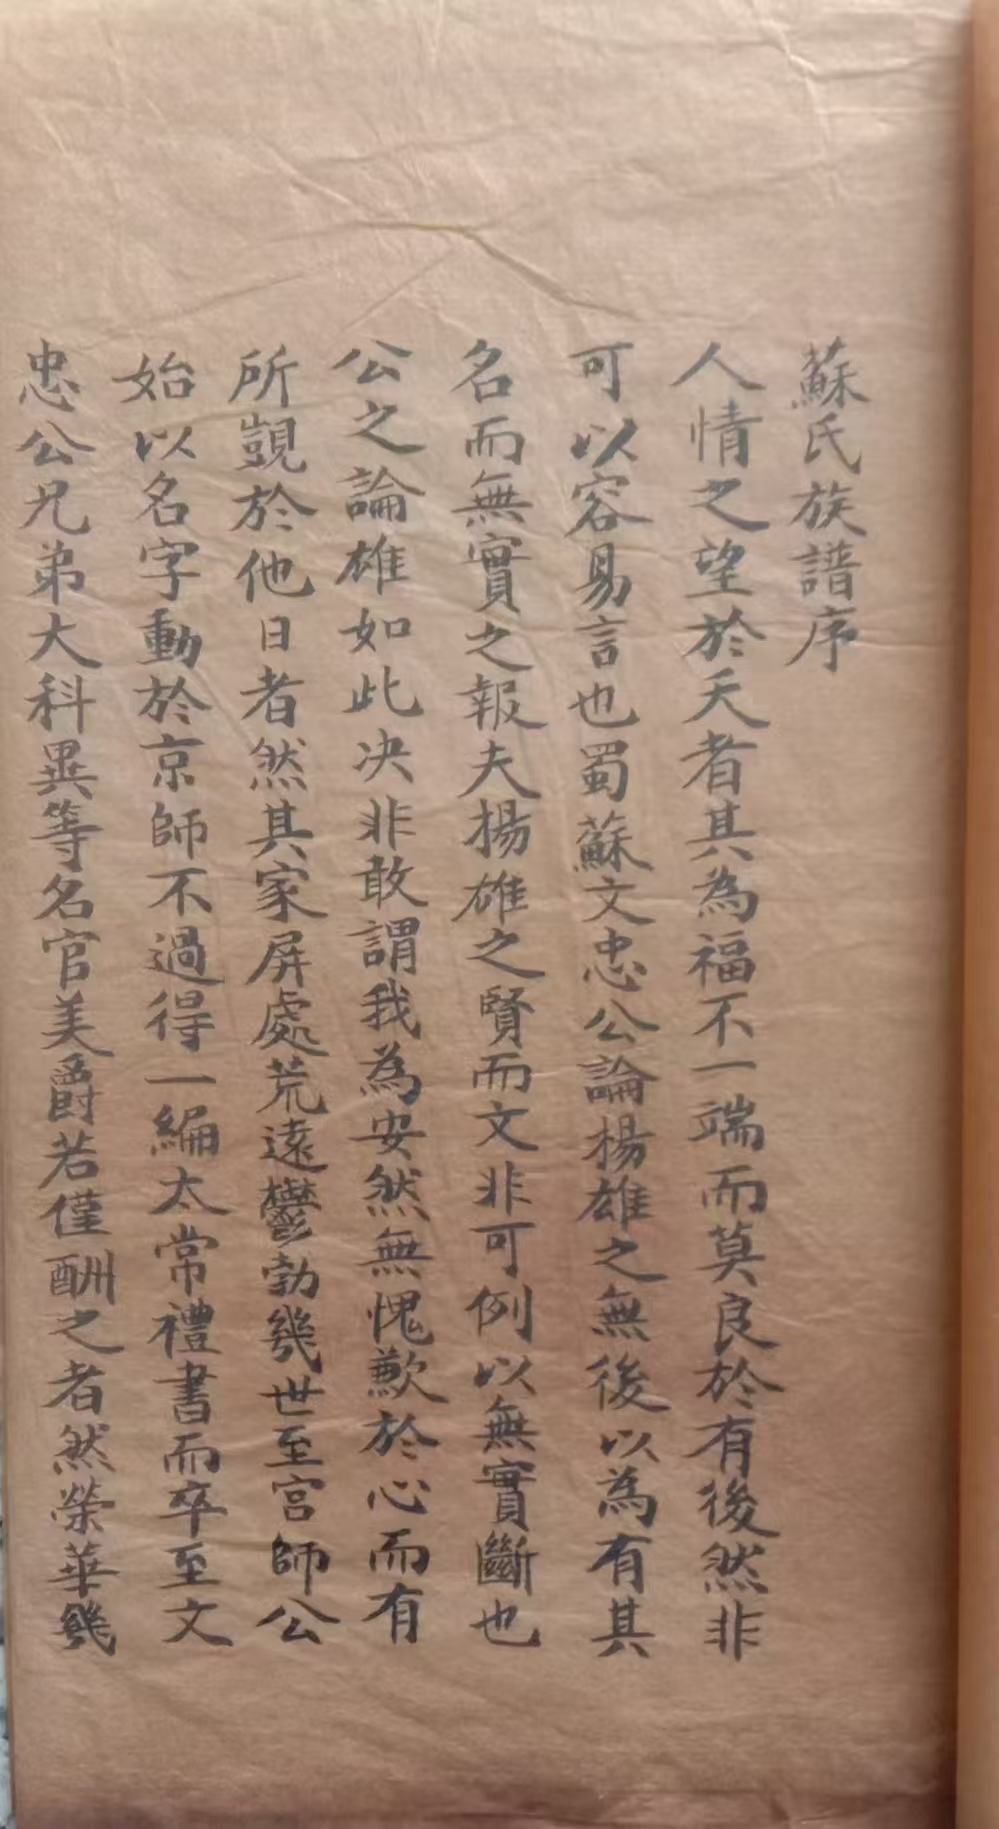 蘇氏族譜序
人情之望於天者其為福不一端而莫良於有後然非
可以容易言也蜀蘇文忠公論楊雄之無後以為有其
名而無實之報夫揚雄之賢而文非可例以無實斷也
公之論雄如此决非敢謂我為安然無愧歉於心而有
所覬於他日者然其家屏處荒遠鬱勃幾世至宫師公
始以名字動於京師不過得一編太常禮書而卒至文
忠公兄弟大科異等名官美爵若僅酬之者然榮華幾